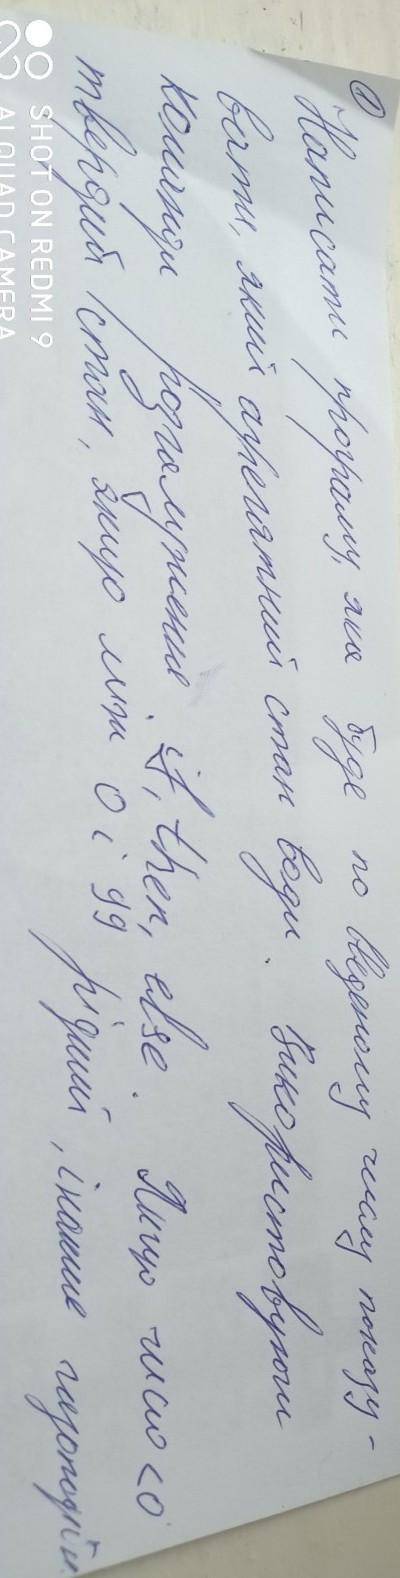 ①
Написати програму, яка буде по введеному числу показу-
вати, який агрегатний стан води. Використовуючи
команди розгалуження if, then, else. Якщо число <0
твердий стан, якщо між 0 і 99 рідкий, інакше газоподібн.
SHOT ON REDMI 9
AI QUAD CAMERA